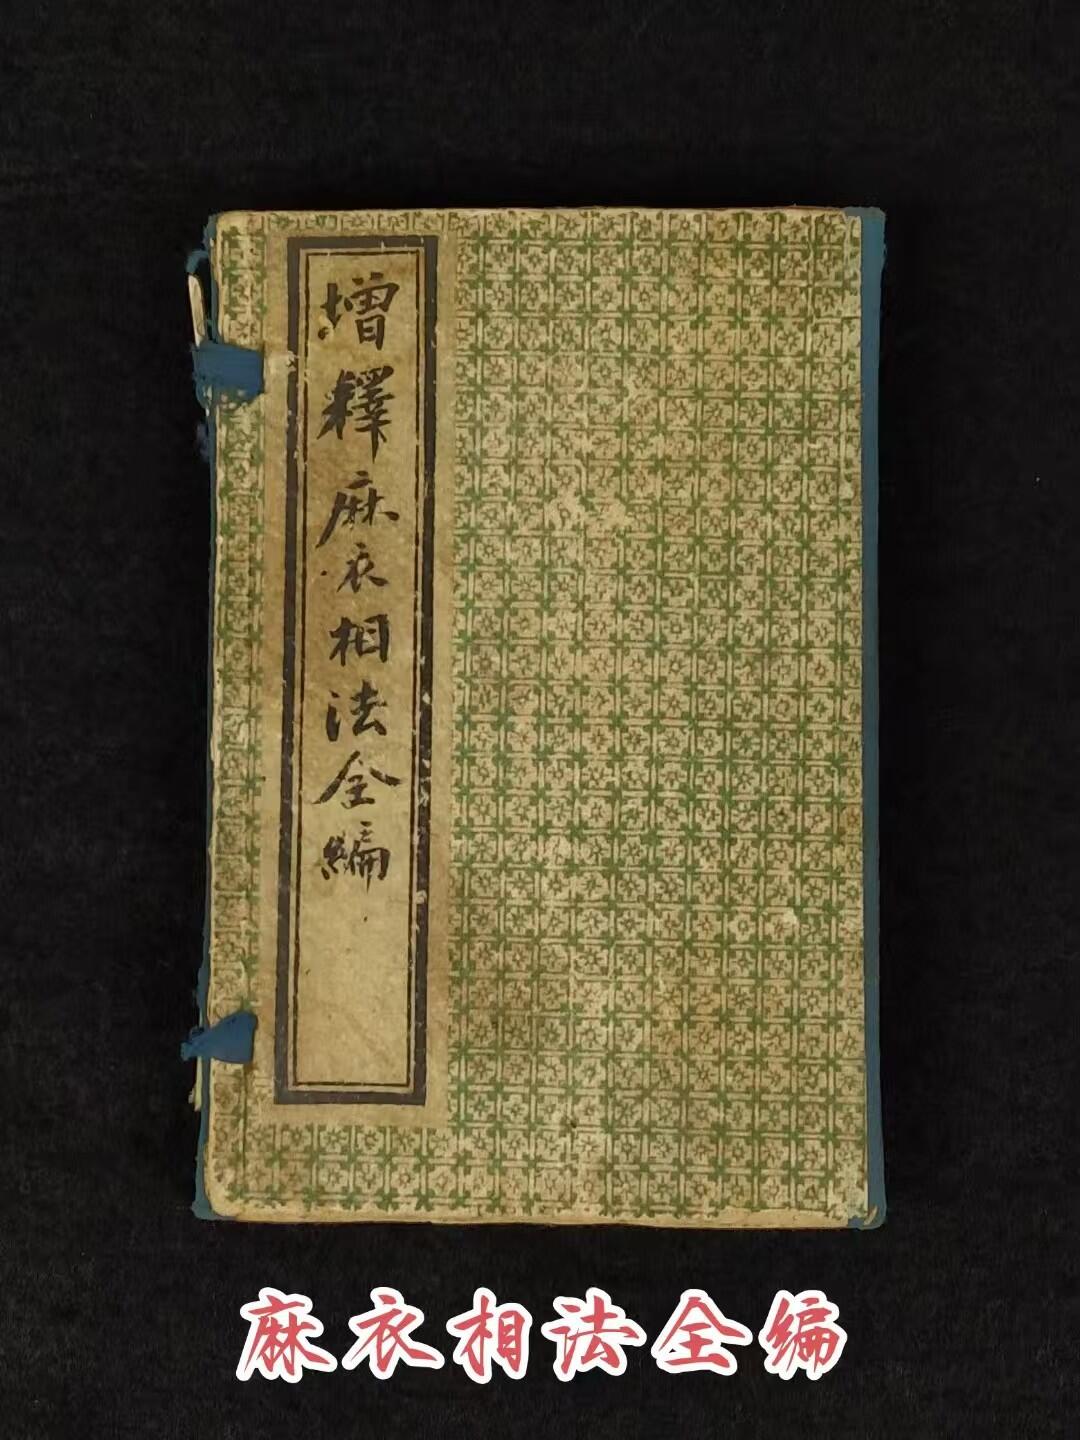 增釋麻衣相法全編
麻衣相法全编